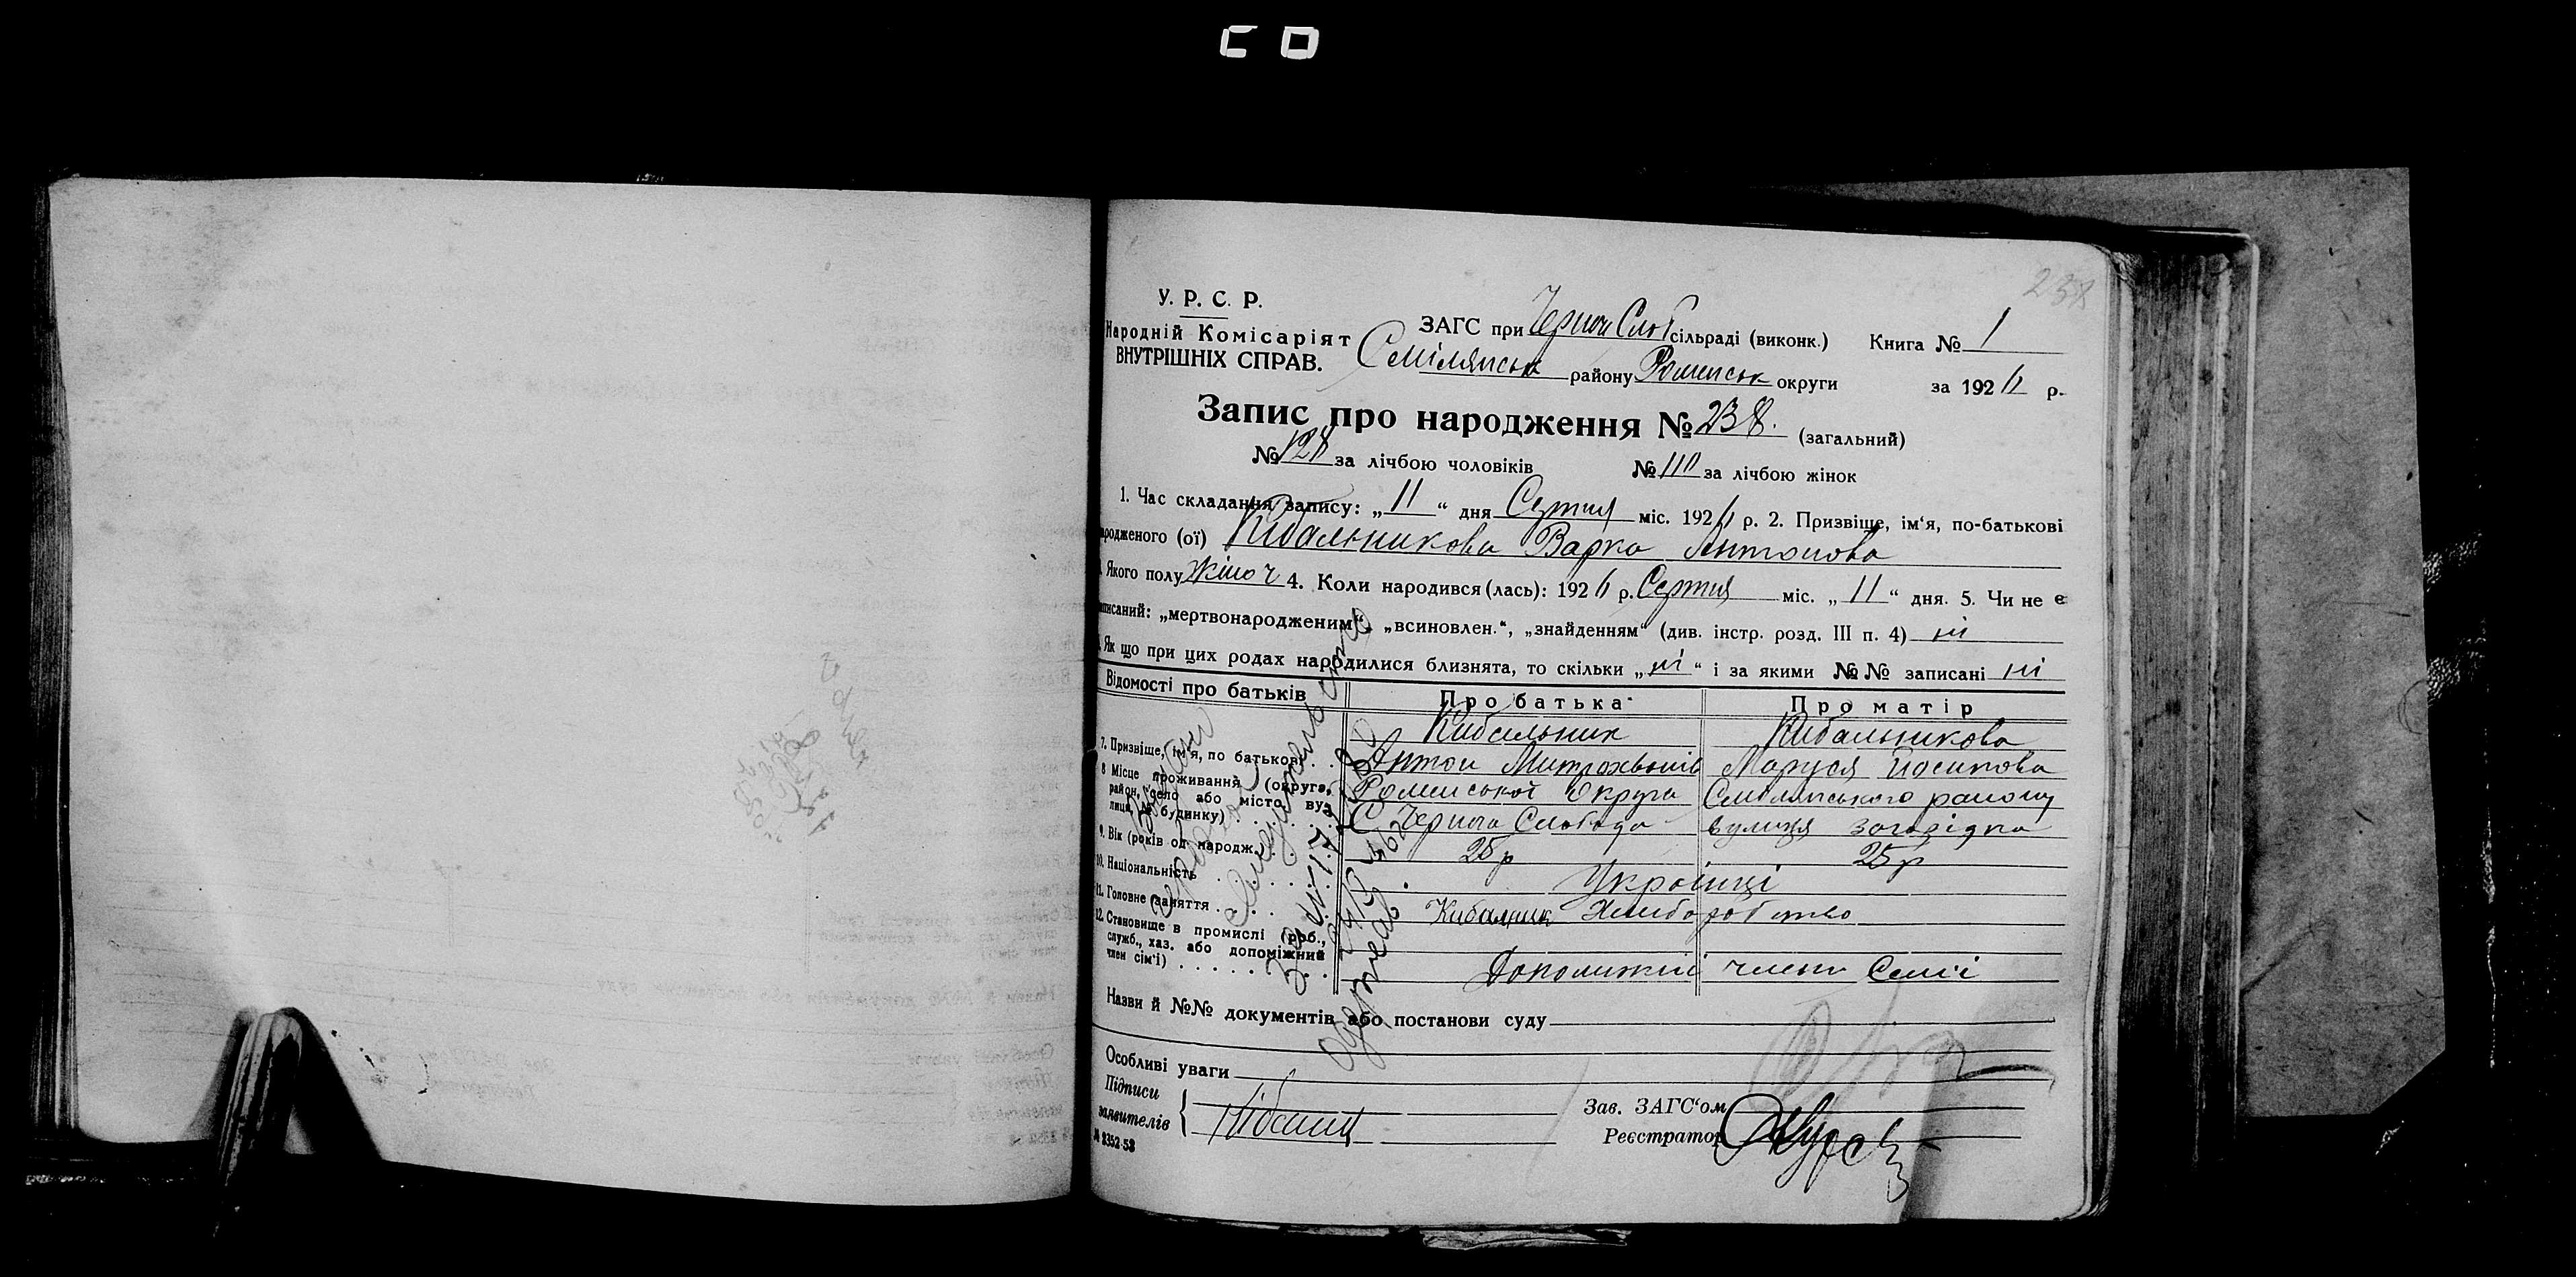 238
У. Р. С. Р.
Народній Комісаріят
ВНУТРІШНІХ СПРАВ.
ЗАГС при Черно Слоб сільраді (виконк.) Книга № 1
Смілянськ району Роменськ округи за 1926 р.
Запис про народження № 238. (загальний)
№ 128 за лічбою чоловіків № 110 за лічбою жінок
1. Час складання запису: „ 11 “ дня Серпня міс. 1926 р. 2. Призвіще, ім‘я, по-батькові
народженого (ої) Кибальникова Варка Антонова
Якого полу жіноч 4. Коли народився (лась): 1926 р. Серпня міс. „ 11 “ дня. 5. Чи не є
записаний: „мертвонародженим“, „всиновлен.“, „знайденням“ (див. інстр. розд. III п. 4) ні
Як що при цих родах народилися близнята, то скільки „ ні “ і за якими №№ записані ні
Відомості про батьків Про батька Про матір
Кибальник Кибальникова
7. Призвіще, ім‘я, по батькові . . Антон Митрохвонів Маруся Йосипова
8 Місце проживання (округа, район, село або місто, вулиця, № будинку) Роменської Округи Смілянського району
С Черна Слобода вулиця загорідна
9. Вік (років од народж. 25 р 25 р
10. Національність Українці
11. Головне заняття Кибалник Хлиборобство
12. Становище в промислі (роб., служб., хаз. або допоміжний член сім‘ї) Допомижні члени Семїї
Назви й №№ документів або постанови суду
Особливі уваги
Підписи
заявителів
Кибальн
Зав. ЗАГС‘ом
Реєстратор
№ 2352-53